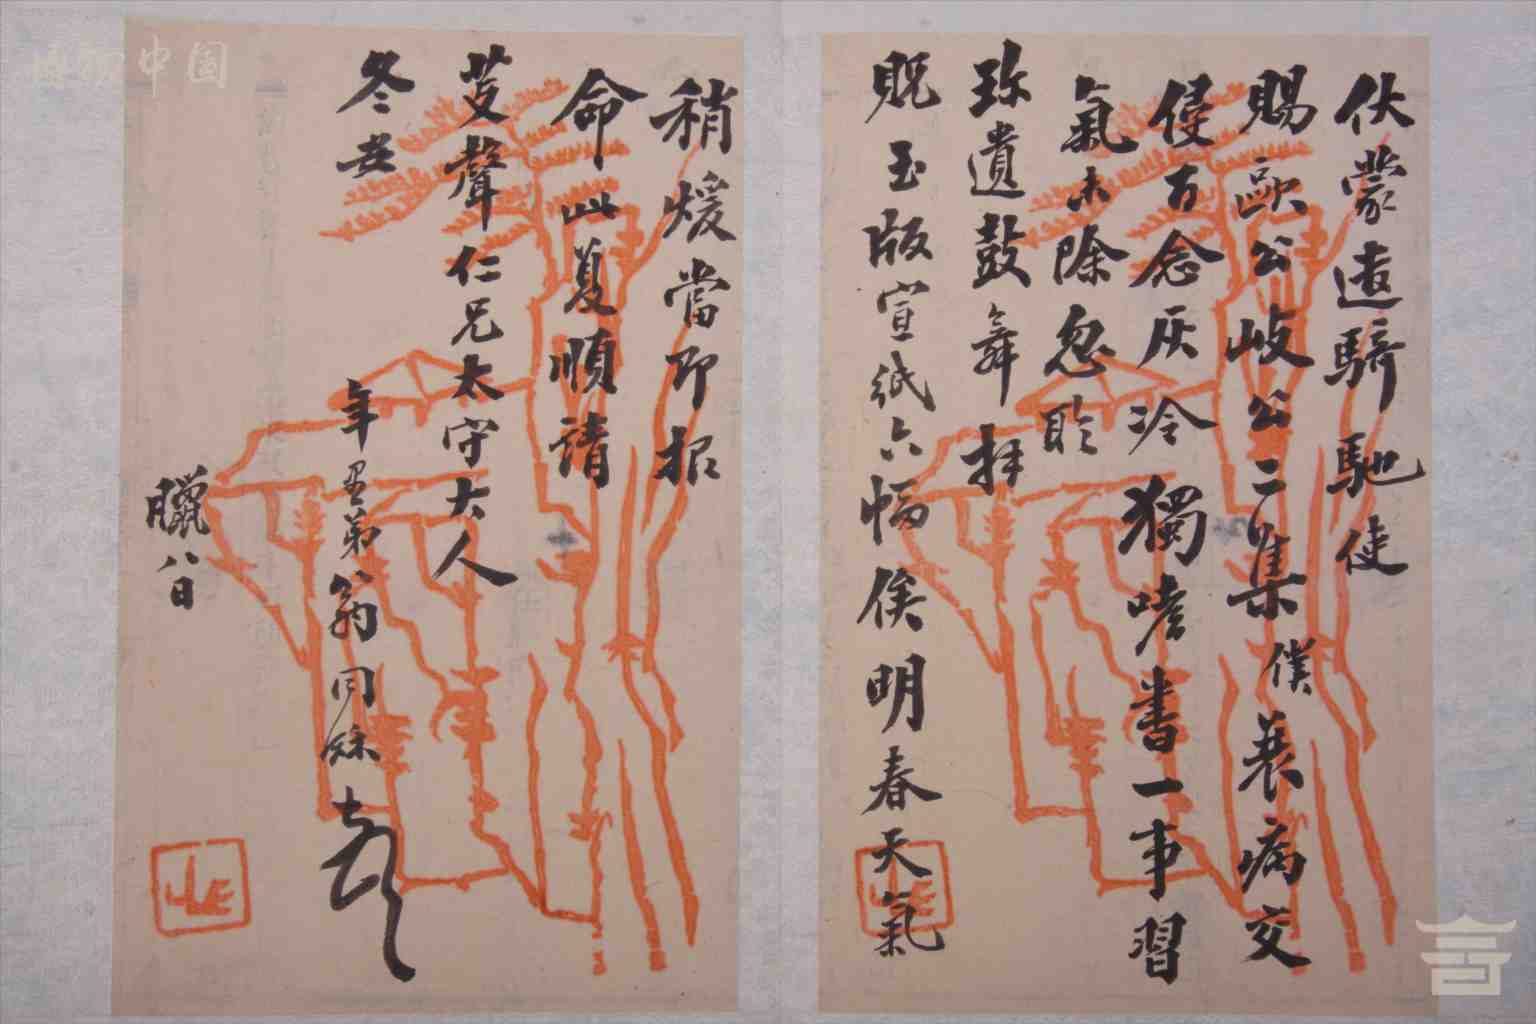 博物中国
伏蒙遣騎馳使
賜歐公岐公二集僕衰病交
侵百念灰冷獨嗜書一事習
氣未除忽聆
珎遺鼓舞拜
貺玉版宣紙六幅俟明春天氣
稍煖當即報
命此覆順請
聲仁兄太守大人
冬安
年愚弟翁同龢頓首
臘八日